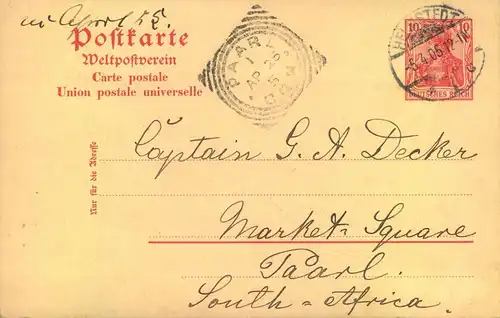 April
Postkarte
Weltpostverein
Carte postale
Union postale universelle
Nur für die Adresse
PAARL
1
AP 26
05
10 10
DEUTSCHES REICH
5.4.05.12
Captain G. A. Decker
Market-Square
Paarl.
South-Africa.